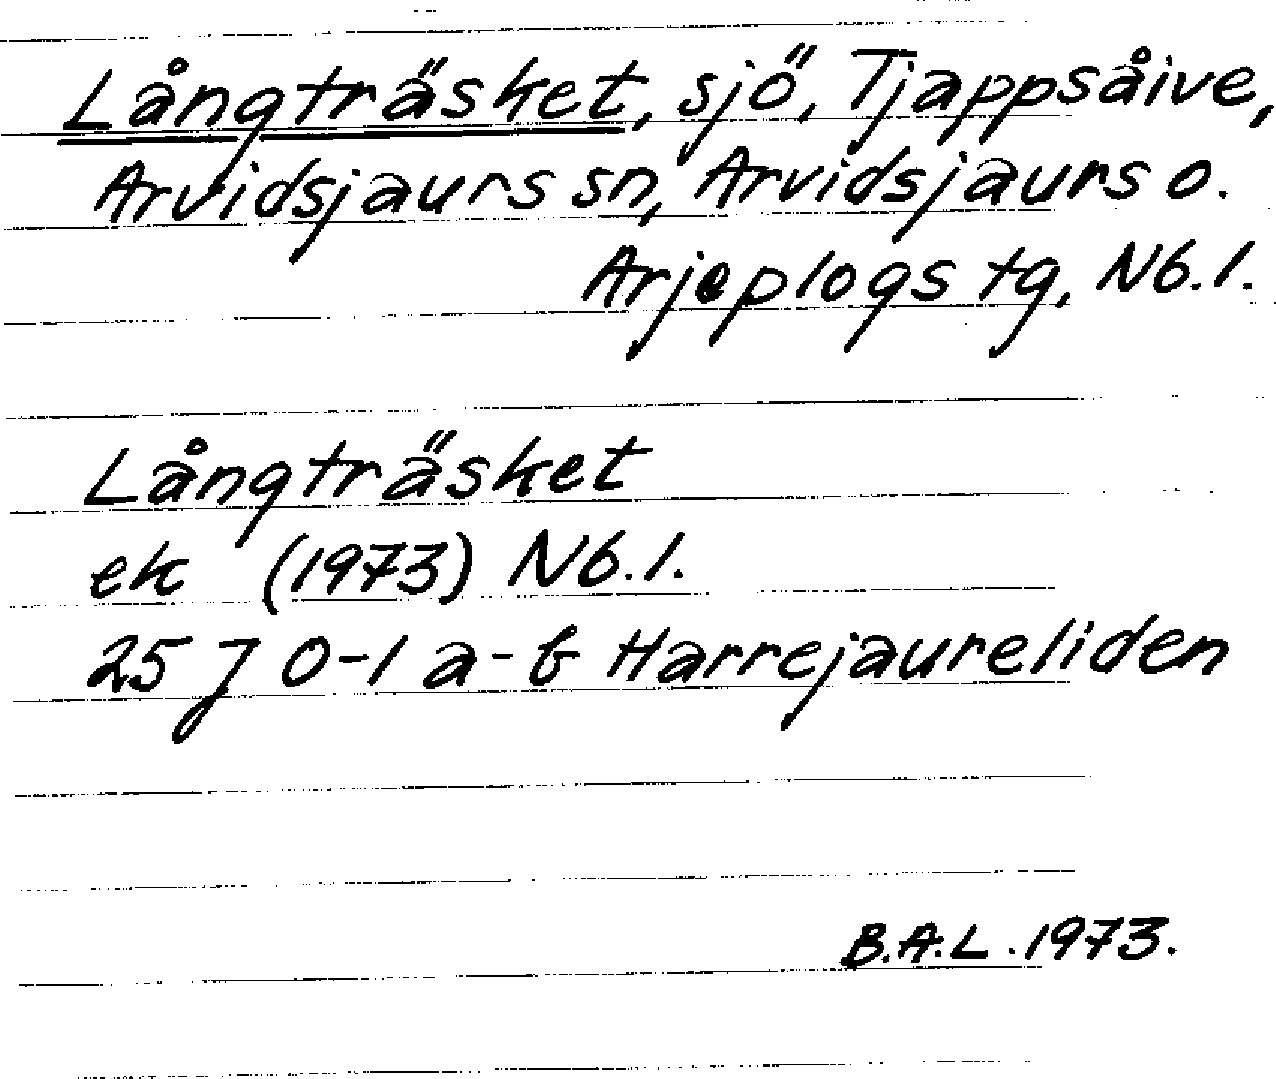 Långträsket, sjö, Tjappsåive,
Arvidsjaurs sn, Arvidsjaurs o.
Arjeplogs tg, Nb.l.
Långträsket
ek (1973) Nb.l.
25 J 0-1 a-b Harrejaureliden
B.A.L. 1973.